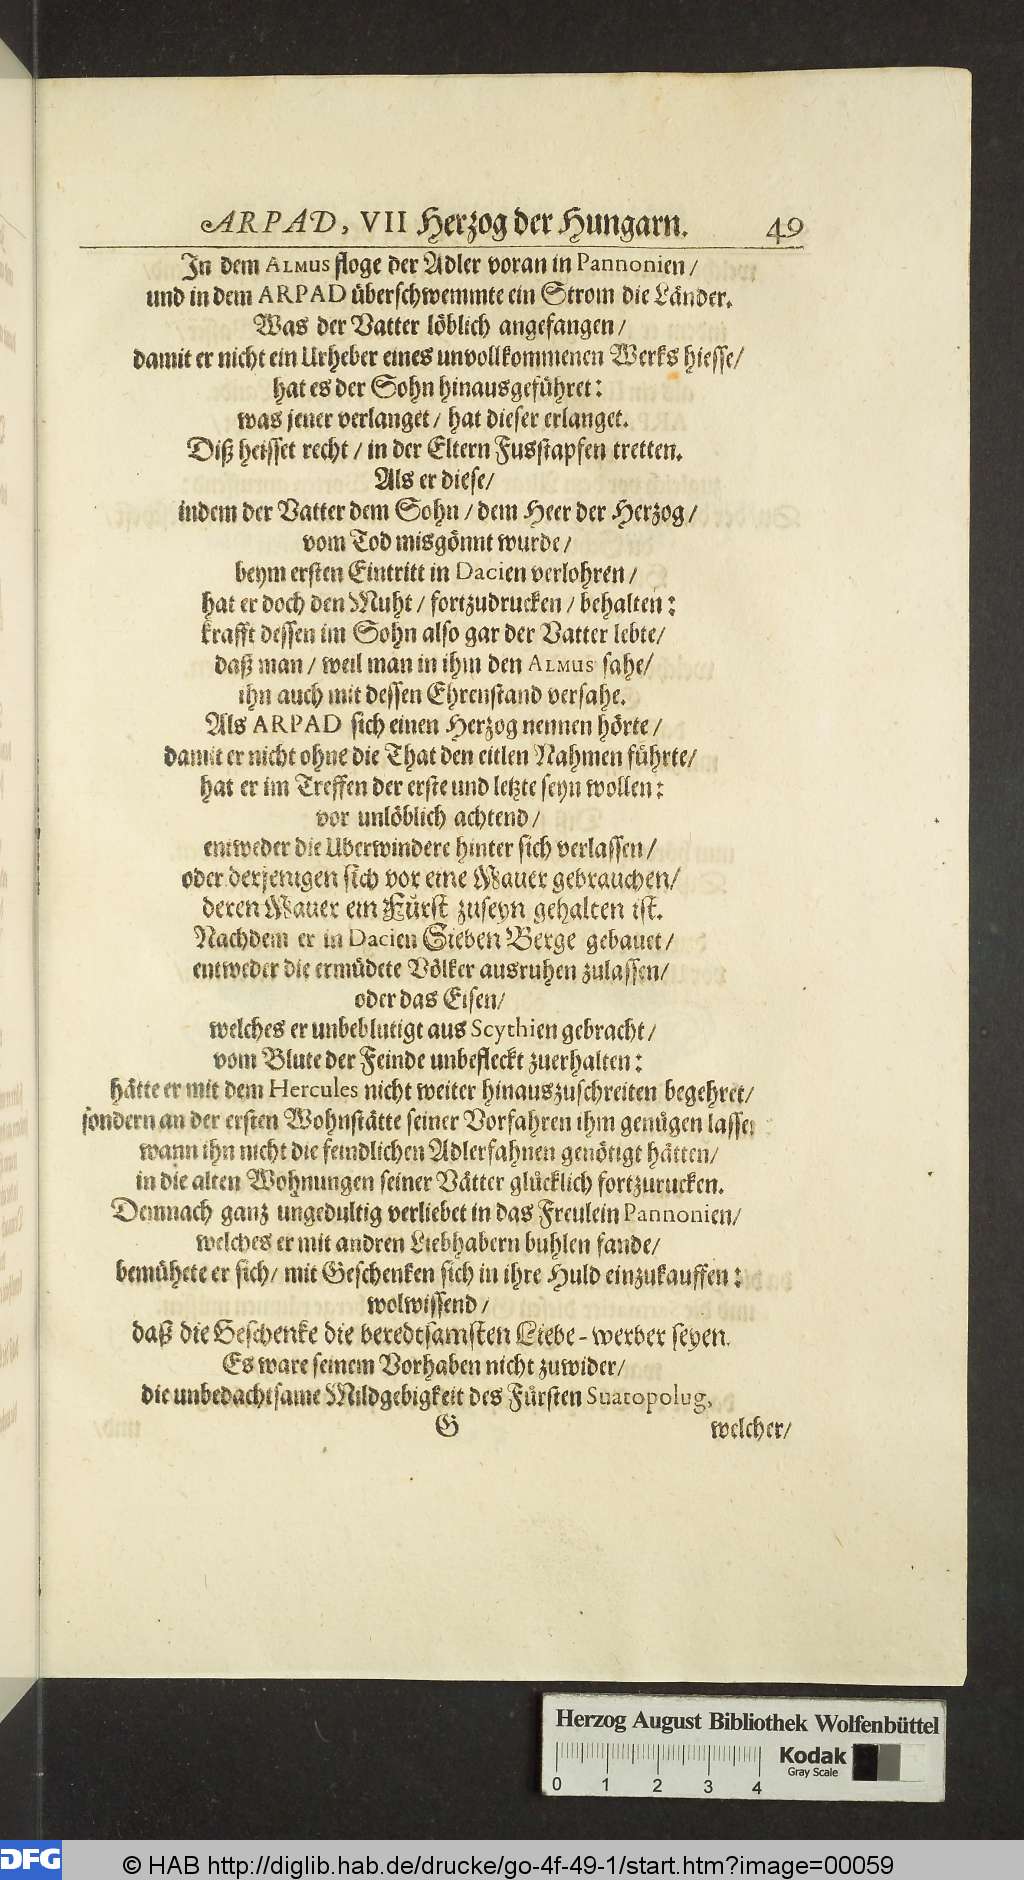 ARPAD, VII Herzog der Hungarn. 49
In dem ALMUS floge der Adler voran in Pannonien /
und in dem ARPAD überschwemmte ein Strom die Länder.
Was der Vatter löblich angefangen /
damit er nicht ein Urheber eines unvollkommenen Werks hiesse /
hat es der Sohn hinausgeführet:
was jener verlanget / hat dieser erlanget.
Diß heisset recht / in der Eltern Fusstapfen tretten.
Als er diese /
indem der Vatter dem Sohn / dem Heer der Herzog /
vom Tod misgönnt wurde /
beym ersten Eintritt in Dacien verlohren /
hat er doch den Muht / fortzudrucken / behalten:
krafft dessen im Sohn also gar der Vatter lebte /
daß man / weil man in ihm den ALMUS sahe /
ihn auch mit dessen Ehrenstand versahe.
Als ARPAD sich einen Herzog nennen hörte /
damit er nicht ohne die That den eitlen Nahmen führte /
hat er im Treffen der erste und letzte seyn wollen:
vor unlöblich achtend /
entweder die Uberwindere hinter sich verlassen /
oder derjenigen sich vor eine Mauer gebrauchen /
deren Mauer ein Fürst zuseyn gehalten ist.
Nachdem er in Dacien Sieben Berge gebauet /
entweder die ermüdete Völker ausruhen zulassen /
oder das Eisen /
welches er unbeblutigt aus Scythien gebracht /
vom Blute der Feinde unbefleckt zuerhalten:
hätte er mit dem Hercules nicht weiter hinauszuschreiten begehret /
sondern an der ersten Wohnstätte seiner Vorfahren ihm genügen lasse:
wann ihn nicht die feindlichen Adlerfahnen genötigt hätten /
in die alten Wohnungen seiner Vätter glücklich fortzurucken.
Demnach ganz ungedultig verliebet in das Freulein Pannonien /
welches er mit andren Liebhabern buhlen fande /
bemühete er sich / mit Geschenken sich in ihre Huld einzukauffen:
wolwissend /
daß die Geschenke die beredtsamsten Liebe-werber seyen.
Es ware seinem Vorhaben nicht zuwider /
die unbedachtsame Mildgebigkeit des Fürsten Suatopolug,
G welcher /
Herzog August Bibliothek Wolfenbüttel
Kodak
Gray Scale
0 1 2 3 4
DFG © HAB http://diglib.hab.de/drucke/go-4f-49-1/start.htm?image=00059